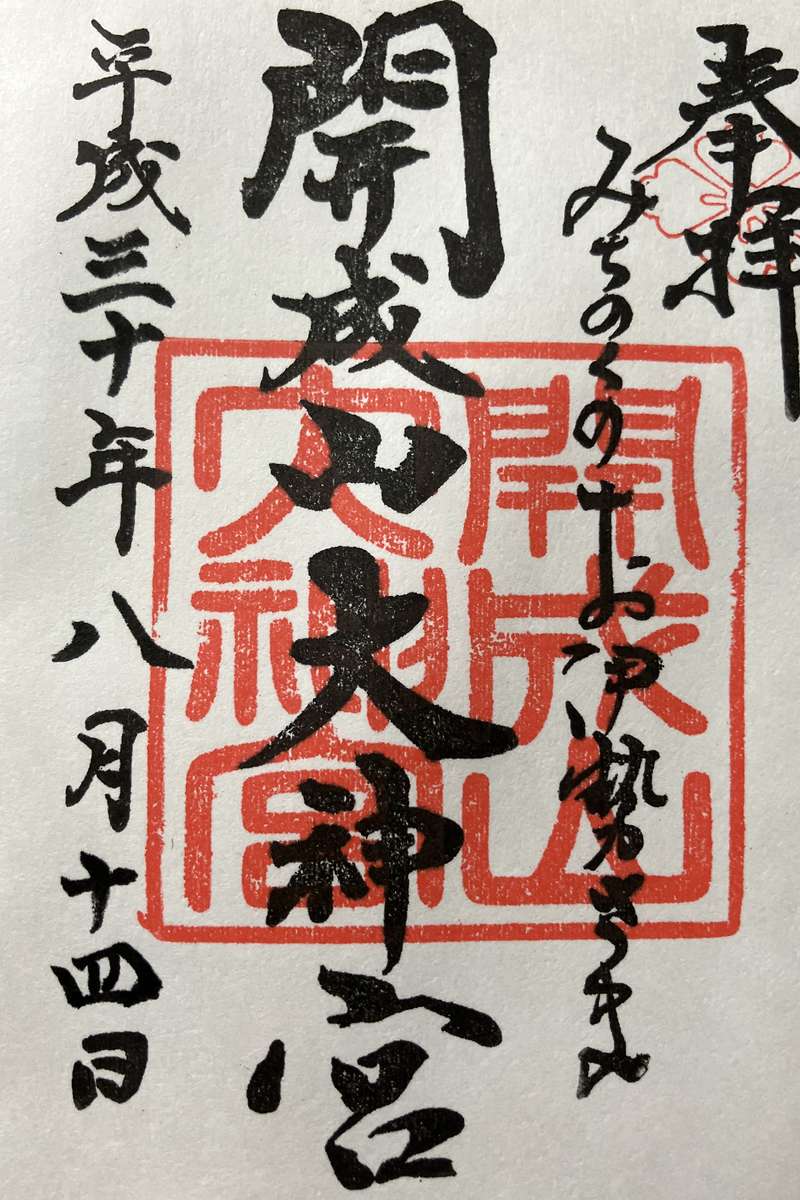 奉拝
みちのくのお伊勢さま
開成山大神宮
平成三十年八月十四日
開成山
大神宮